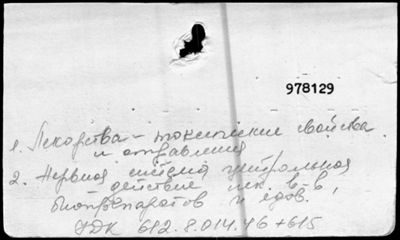 978129
1. Лекарства - токсические свойства
и отравления
2. Нервная система центральная
действие лек. в-в,
биопрепаратов и ядов.
УДК 612.8.014.46+615